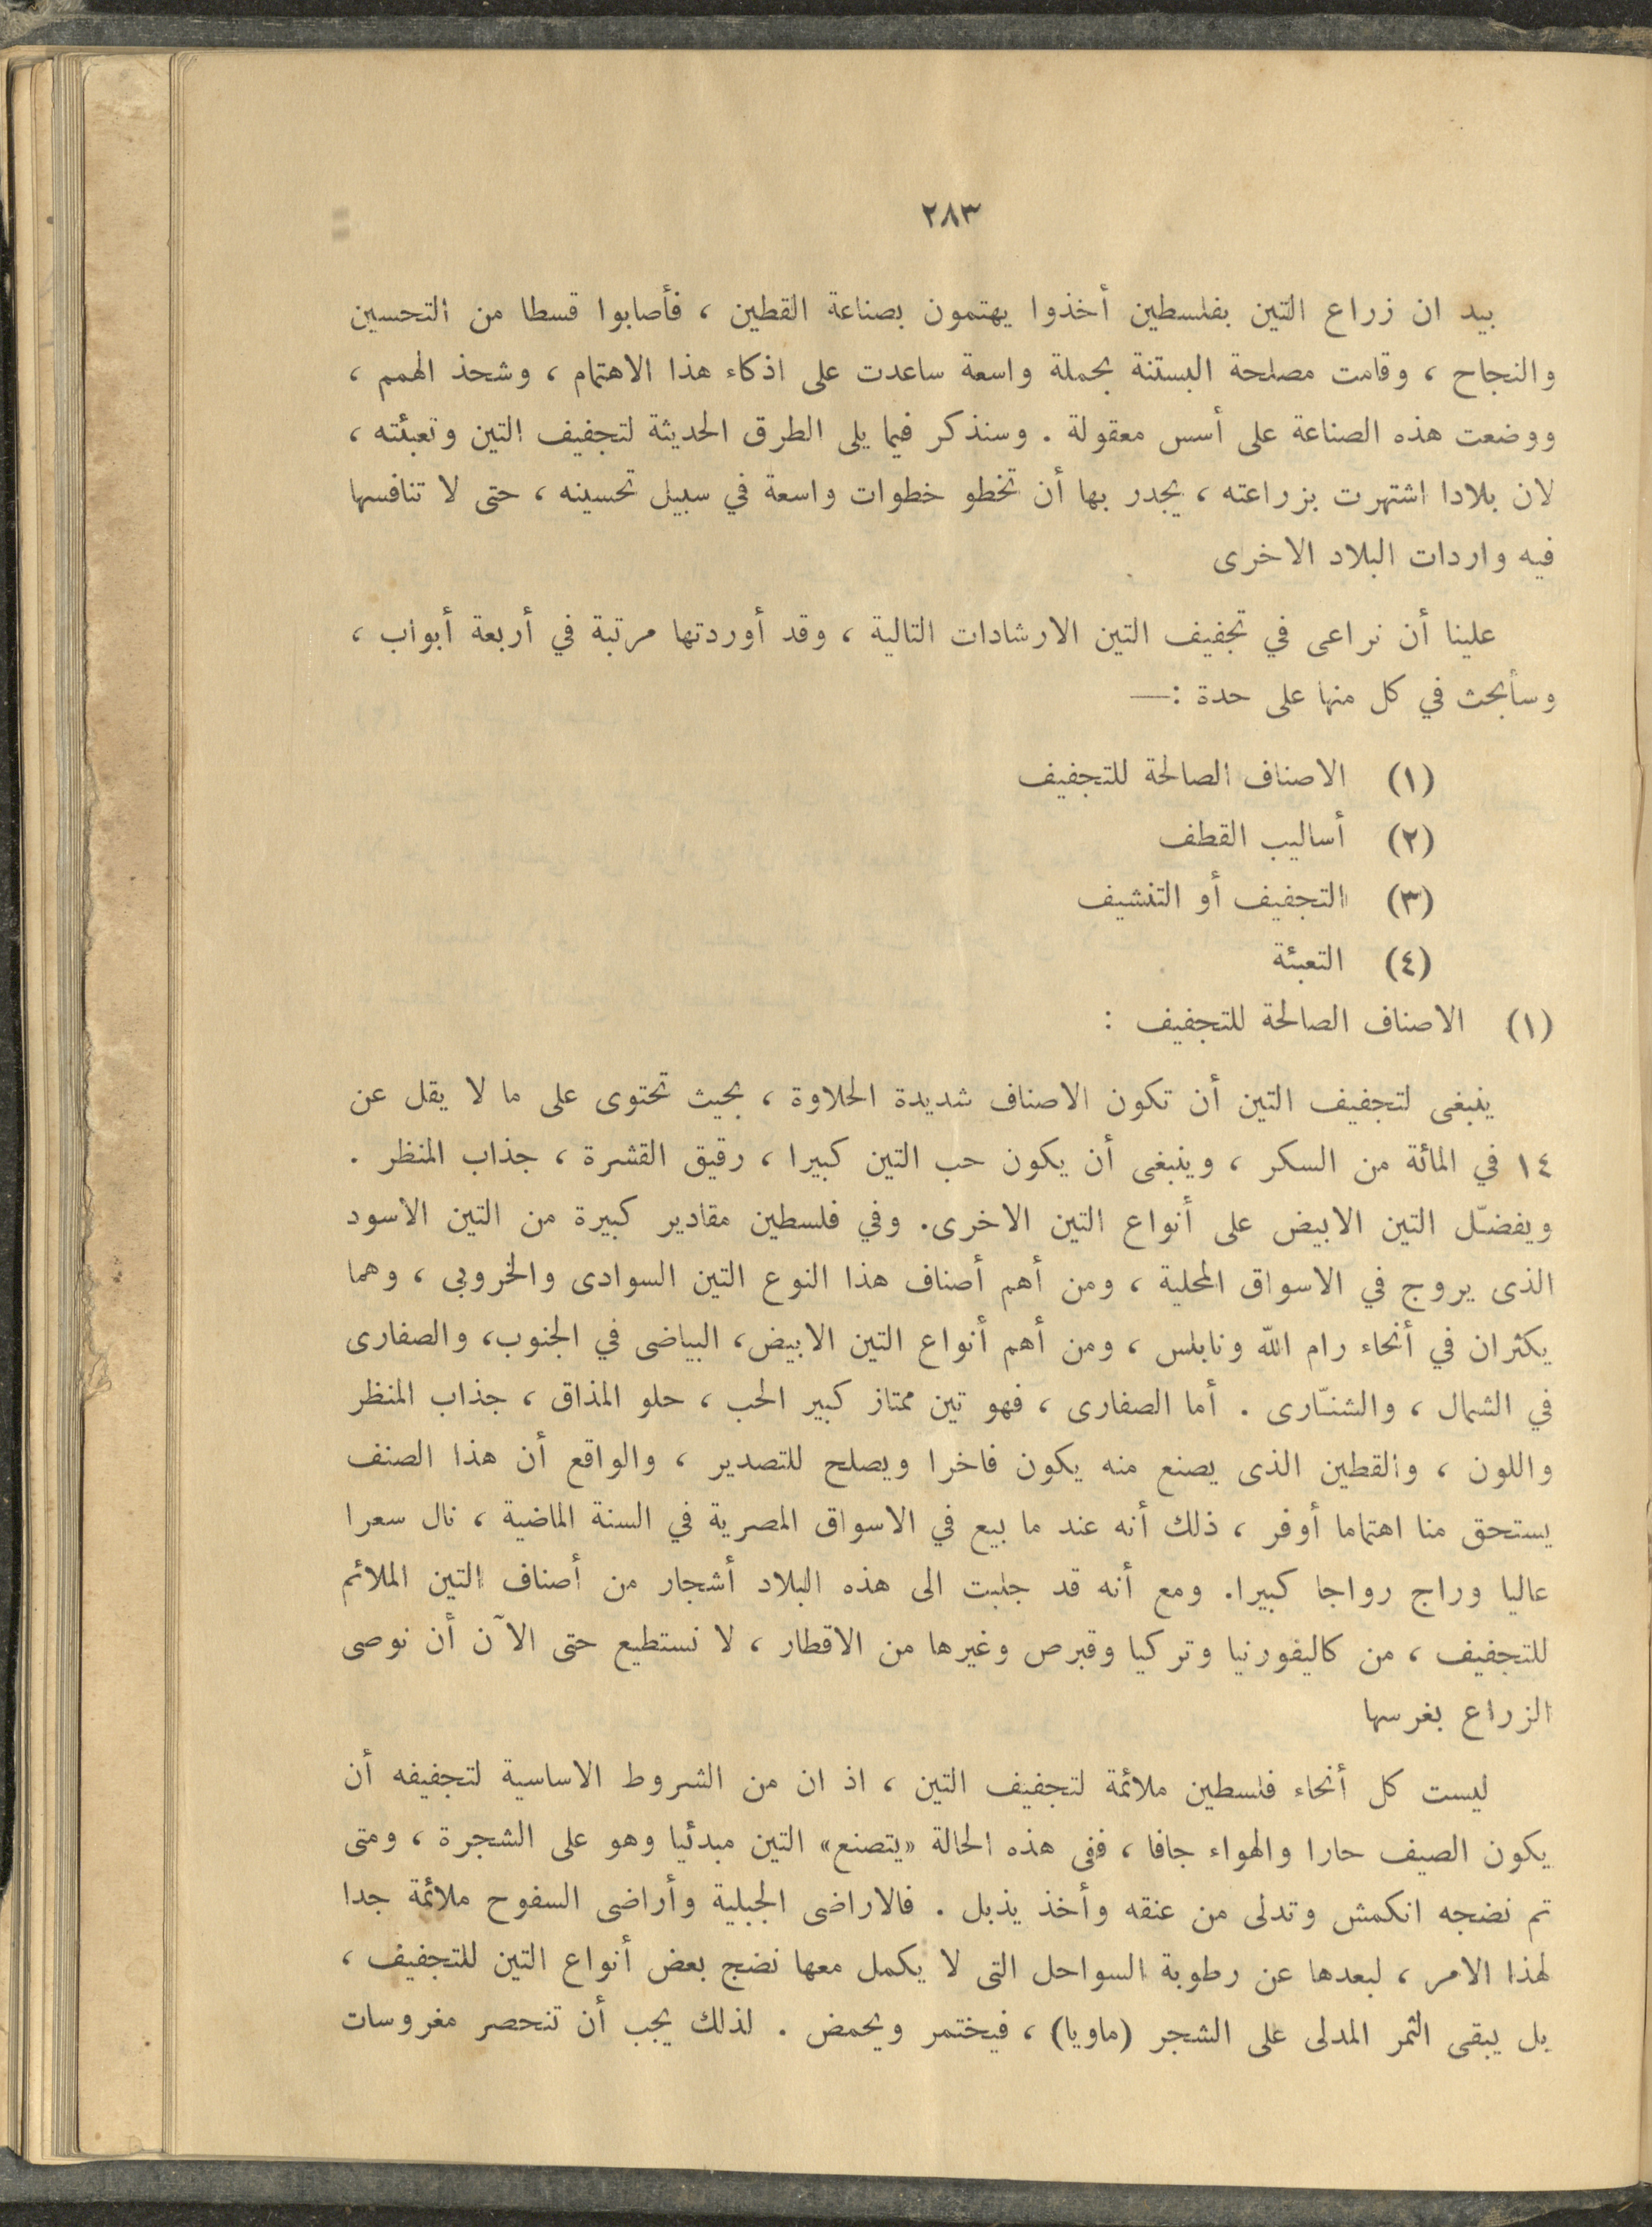 ٢٨٣
بيد ان زراع التين بفلسطين أخذوا يهتمون بصناعة القطين ، فأصابوا قسطا من التحسين
والنجاح ، وقامت مصلحة البستنة بحملة واسعة ساعدت على اذكاء هذا الاهتمام ، وشحذ الهمم ،
ووضعت هذه الصناعة على أسس معقولة . وسنذكر فيما يلى الطرق الحديثة لتجفيف التين وتعبئته ،
لان بلادا اشتهرت بزراعته ، يجدر بها أن تخطو خطوات واسعة في سبيل تحسينه ، حتى لا تنافسها
فيه واردات البلاد الاخرى
علينا أن نراعى في تجفيف التين الارشادات التالية ، وقد أوردتها مرتبة في أربعة أبواب ،
وسأبحث في كل منها على حدة :—
(١) الاصناف الصالحة للتجفيف
(٢) أساليب القطف
(٣) التجفيف أو التنشيف
(٤) التعبئة
(١) الاصناف الصالحة للتجفيف :
ينبغى لتجفيف التين أن تكون الاصناف شديدة الحلاوة ، بحيث تحتوى على ما لا يقل عن
١٤ في المائة من السكر ، وينبغى أن يكون حب التين كبيرا ، رقيق القشرة ، جذاب المنظر .
ويفضّل التين الابيض على أنواع التين الاخرى. وفي فلسطين مقادير كبيرة من التين الاسود
الذى يروج في الاسواق المحلية ، ومن أهم أصناف هذا النوع التين السوادى والخروبى ، وهما
يكثران في أنحاء رام الله ونابلس ، ومن أهم أنواع التين الابيض، البياضى في الجنوب، والصفارى
في الشمال ، والشنّارى . أما الصفارى ، فهو تين ممتاز كبير الحب ، حلو المذاق ، جذاب المنظر
واللون ، والقطين الذى يصنع منه يكون فاخرا ويصلح للتصدير ، والواقع أن هذا الصنف
يستحق منا اهتماما أوفر ، ذلك أنه عند ما بيع في الاسواق المصرية في السنة الماضية ، نال سعرا
عاليا وراج رواجا كبيرا. ومع أنه قد جلبت الى هذه البلاد أشجار من أصناف التين الملائم
للتجفيف ، من كاليفورنيا وتركيا وقبرص وغيرها من الاقطار ، لا نستطيع حتى الآن أن نوصى
الزراع بغرسها
ليست كل أنحاء فلسطين ملائمة لتجفيف التين ، اذ ان من الشروط الاساسية لتجفيفه أن
يكون الصيف حارا والهواء جافا ، ففى هذه الحالة «يتصنع» التين مبدئيا وهو على الشجرة ، ومتى
تم نضجه انكمش وتدلى من عنقه وأخذ يذبل . فالاراضى الجبلية وأراضى السفوح ملائمة جدا
لهذا الامر ، لبعدها عن رطوبة السواحل التى لا يكمل معها نضج بعض أنواع التين للتجفيف ،
بل يبقى الثمر المدلى على الشجر (ماويا) ، فيختمر ويحمض . لذلك يجب أن تنحصر مغروسات